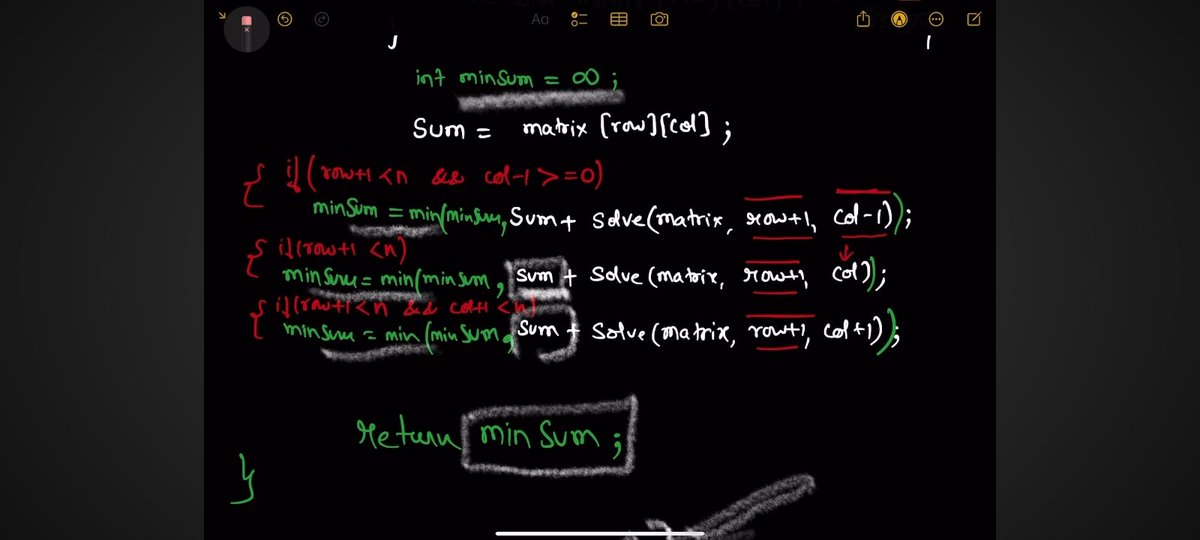 Aa
}
int minSum = ∞ ;
Sum = matrix [row][col] ;
{ if (row+1 <n && col-1 >=0)
minSum = min(minSum, Sum + Solve(matrix, row+1, col-1));
{ if (row+1 <n)
minSum = min(minSum, Sum + Solve (matrix, row+1, col));
{ if (row+1<n && col+1 <n)
minSum = min (minSum, Sum + Solve (matrix, row+1, col+1));
return minSum ;
}